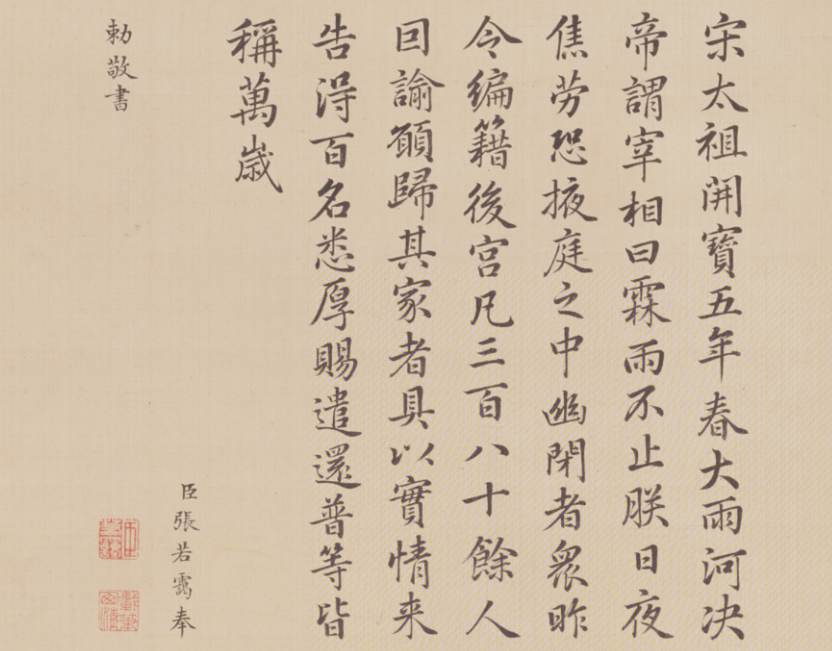 宋太祖開寶五年春大雨河决
帝謂宰相曰霖雨不止朕日夜
焦劳恐掖庭之中幽閉者衆昨
令编籍後宫凡三百八十餘人
囙諭願歸其家者具以實情来
告淂百名悉厚賜遣還普等皆
稱萬歳
臣張若靄奉
勅敬書